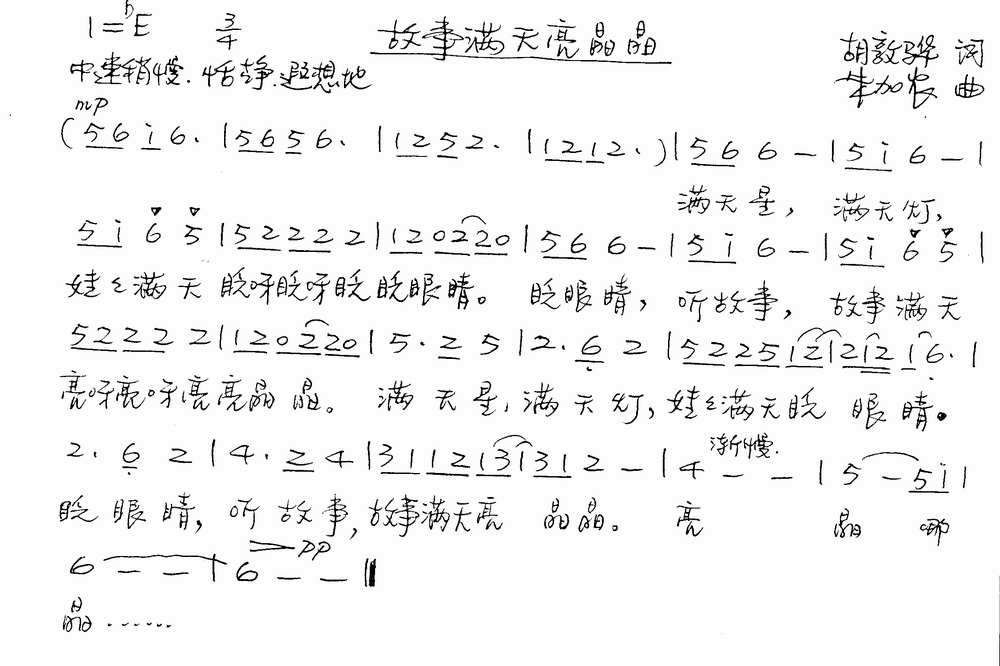 1=♭E 3/4 故事满天亮晶晶
中速稍慢.恬静.遐想地
胡敦骅 词
朱加农 曲
mp
(5 6 i 6. |5 6 5 6. |1 2 5 2. |1 2 1 2.)|5 6 6 — |5 i 6 — |
满天星, 满天灯,
5 i 6 5 |5 2 2 2 2 |1 2 0 2 2 0 |5 6 6 — |5 i 6 — |5 i 6 5 |
娃娃满天 眨呀眨呀眨 眨眼睛。 眨眼睛, 听故事, 故事满天
5 2 2 2 2 |1 2 0 2 2 0 |5. 2 5 |2. 6 2 |5 2 2 5 1 2 |2 1 2 1 6. |
亮呀亮呀亮 亮晶 晶。 满 天星, 满 天灯, 娃娃满天眨 眼 睛。
2. 6 2 |4. 2 4 |3 1 1 2 1 3 1 3 1 2 — |4 — — |5 — 5 i |
渐慢.
眨 眼睛, 听 故事, 故事满天亮 晶晶。 亮 晶 哪
6 — — |6 — — ‖
pp
晶 ……